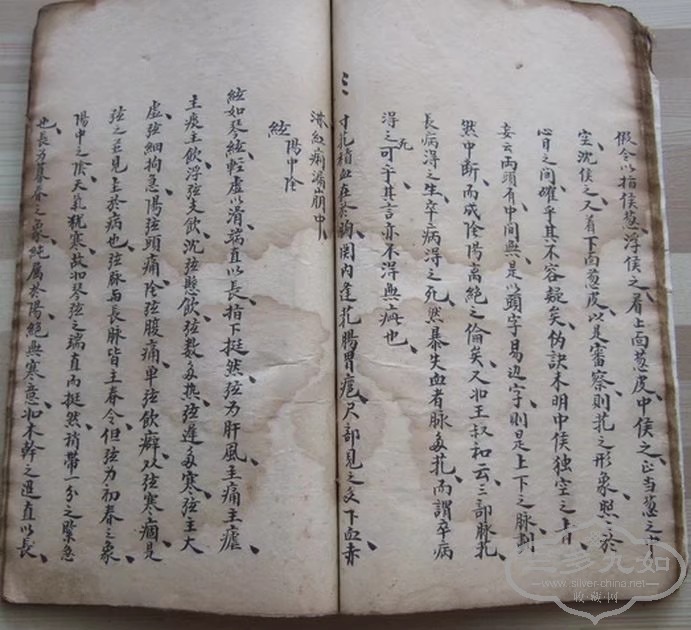 假令以指侯葱浮侯之着上面葱皮中侯之正当葱之中
空沈侯之又着下面葱皮以是審察則芤之形象照々於
心目之间確乎其不容疑矣偽訣未明中侯独空之上曰
妄云两頭有中间無是以頭字易边字則是上下之脉劃
然中断而成陰陽离绝之倫矣又如王叔和云三部脉芤
長病得之生卒病得之死然暴失血者脉多芤而謂卒病
得之死可乎其言亦不得無疵也
寸芤積血在於胸関内逢芤腸胃癰尺部見之多下血赤
淋红痢漏崩中
絃 陽中陰
絃如琴絃輕虚以滑端直以長指下挺然弦为肝風主痛主瘧
主痰主飲浮弦支飲沈弦懸飲弦数多热弦遲多寒弦主大
虚弦細拘急陽弦頭痛陰弦腹痛单弦飲癖双弦寒痼是
弦之並見主於病也弦脉与長脉皆主春令但弦为初春之象
陽中之陰天氣犹寒故如琴弦之端直而挺然稍带一分之緊急
也長为暮春之象純属於陽絕無寒意如木幹之逥直以長
www.silver-china.net
收藏网